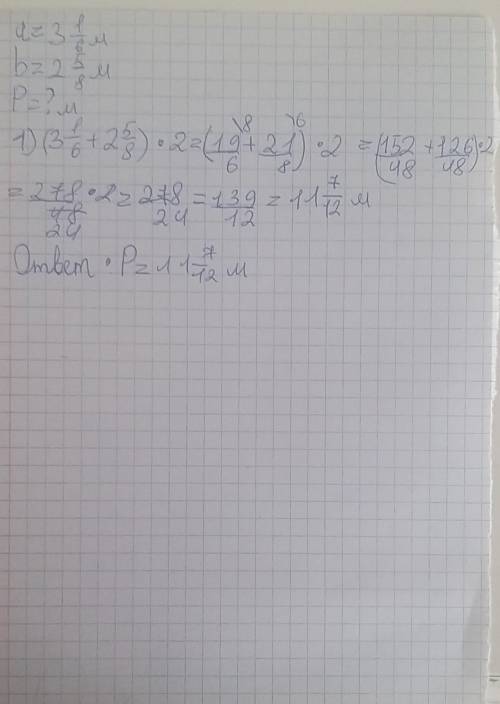 a = 3 1/6 м
b = 2 5/8 м
P = ? м
1) (3 1/6 + 2 5/8) · 2 = (19/6 \8 + 21/8 \6) · 2 = (152/48 + 126/48) · 2
= 278/48 24 · 2 = 278/24 = 139/12 = 11 7/12 м
Ответ · P = 11 7/12 м